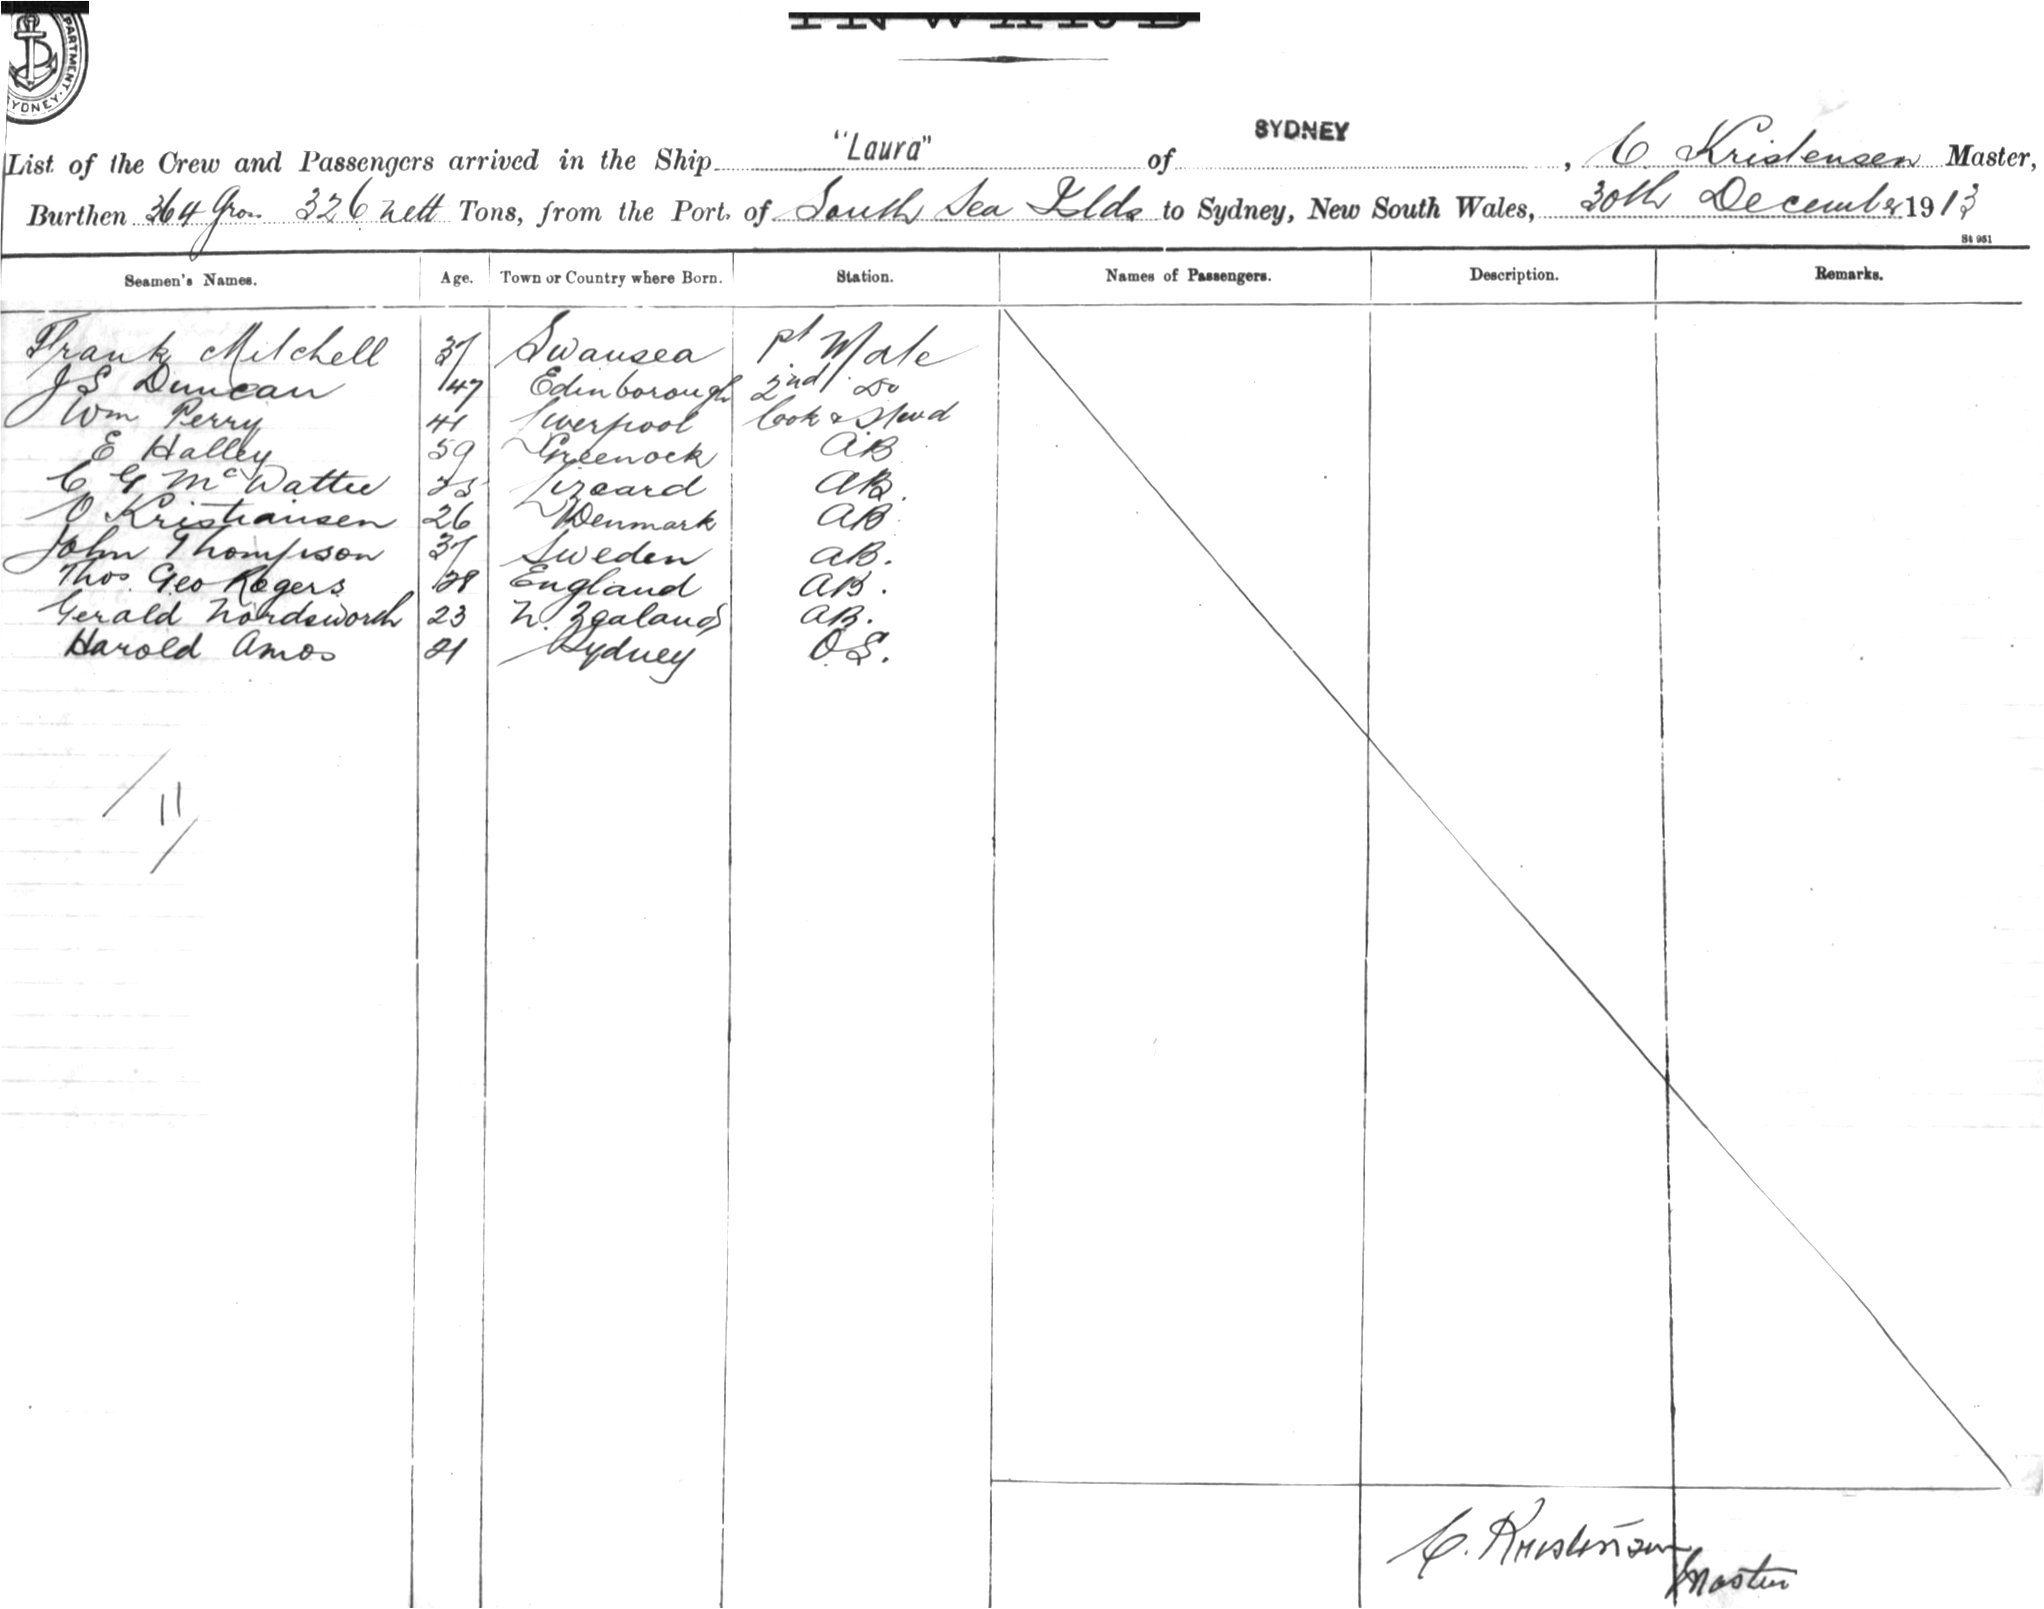 PARTMENT. SYDNEY.
INWARD
List of the Crew and Passengers arrived in the Ship "Laura" of SYDNEY, C Kristensen Master,
Burthen 364 Gros. 326 nett Tons, from the Port of South Sea Islds to Sydney, New South Wales, 30th December 1913
St 951
Seamen's Names. Age. Town or Country where Born. Station. Names of Passengers. Description. Remarks.
Frank Mitchell 37 Swansea Mate
J S Duncan 47 Edinborough 2nd Do
Wm Perry 41 Liverpool Cook & Stewd
E Halley 59 Greenock AB
C G McWattie Lizeard AB.
O Kristiansen 26 Denmark AB
John Thompson 37 Sweden AB.
Thos. Geo Rogers 28 England AB.
Gerald Wordsworth 23 N. Zealand AB.
Harold Amos 21 Sydney O.S.
/ 11 /
C. Kristensen
Master